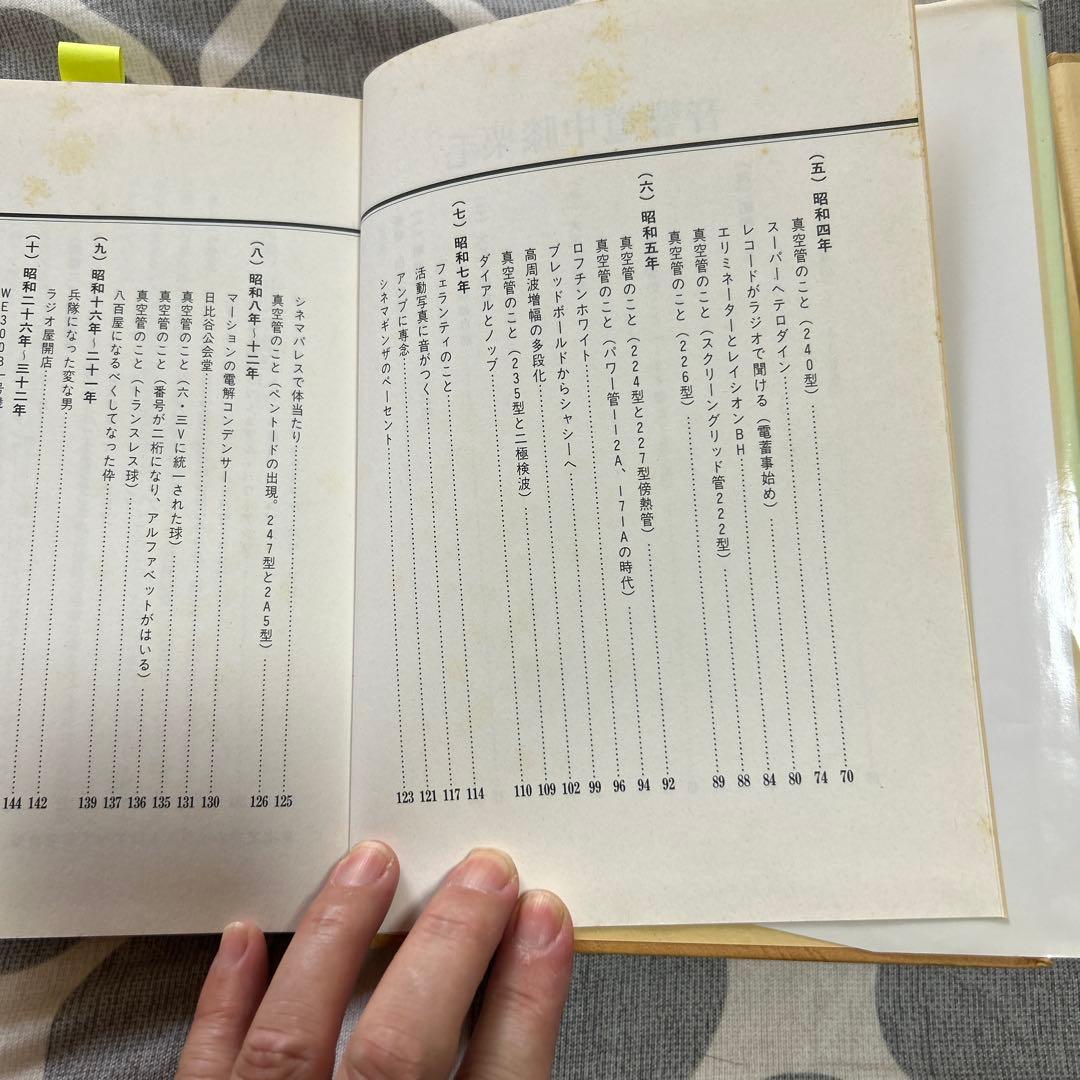 (五) 昭和四年
真空管のこと(240型)……70
スーパーヘテロダイン……74
レコードがラジオで聞ける(電蓄事始め)……80
エリミネーターとレイシオンBH……84
真空管のこと(スクリーングリッド管222型)……88
真空管のこと(226型)……89
(六) 昭和五年
真空管のこと(224型と227型傍熱管)……92
真空管のこと(パワー管112A、171Aの時代)……94
ロフチンホワイト……96
ブレッドボールドからシャシーへ……99
高周波増幅の多段化……102
真空管のこと(235型と二極検波)……109
ダイアルとノップ……110
(七) 昭和七年
フェランティのこと……114
活動写真に音がつく……117
アンプに専念……121
シネマギンザのペーセント……123
シネマパレスで体当たり……125
真空管のこと(ペントードの出現。247型と2A5型)……126
(八) 昭和八年〜十二年
マーションの電解コンデンサー……130
日比谷公会堂……131
真空管のこと(六・三Vに統一された球)……135
真空管のこと(番号が二桁になり、アルファベットがはいる)……136
真空管のこと(トランスレス球)……137
八百屋になるべくしてなった伜……139
(九) 昭和十六年〜二十一年
兵隊になった変な男……142
ラジオ屋開店……144
(十) 昭和二十六年〜三十二年
WE300B一号